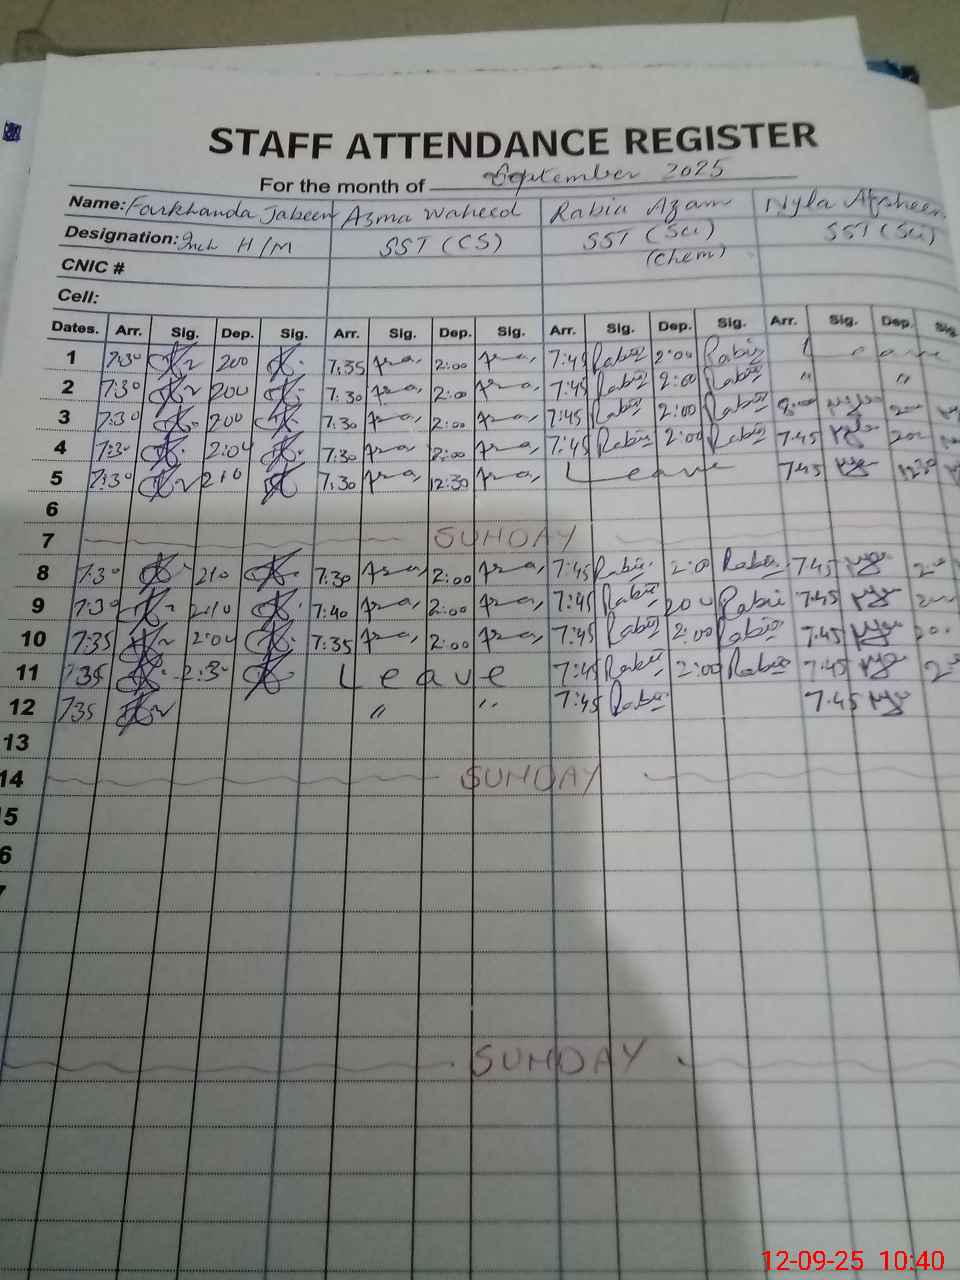 STAFF ATTENDANCE REGISTER
For the month of September 2025
Name: Farkhanda Jabeen Asma Waheed Rabia Azam Nyla Afsheen
Designation: Inch H/M SST (CS) SST (Sci) SST (Sci)
(Chem)
CNIC #
Cell:
Dates. Arr. Sig. Dep. Sig. Arr. Sig. Dep. Sig. Arr. Sig. Dep. Sig. Arr. Sig. Dep. Sig.
1 7:30 200 7:35 2:00 7:45 Rabia 2:00 Rabia Leave
2 7:30 200 7:30 2:00 7:45 Rabia 2:00 Rabia " "
3 7:30 200 7:30 2:00 7:45 Rabia 2:00 Rabia 8:00 200
4 7:30 2:04 7:30 2:00 7:45 Rabia 2:00 Rabia 7:45 200
5 7:30 210 7:30 12:30 Leave 7:45 1230
6
7 SUNDAY
8 7:30 210 7:30 2:00 7:45 Rabia 2:00 Rabia 7:45
9 7:30 2:10 7:40 2:00 7:45 Rabia 200 Rabia 7:45
10 7:35 2:04 7:35 2:00 7:45 Rabia 2:00 Rabia 7:45
11 7:35 2:30 Leave 7:45 Rabia 2:00 Rabia 7:45
12 7:35 " " 7:45 Rabia 7:45
13
14 SUNDAY
15
6
7
SUNDAY
12-09-25 10:40